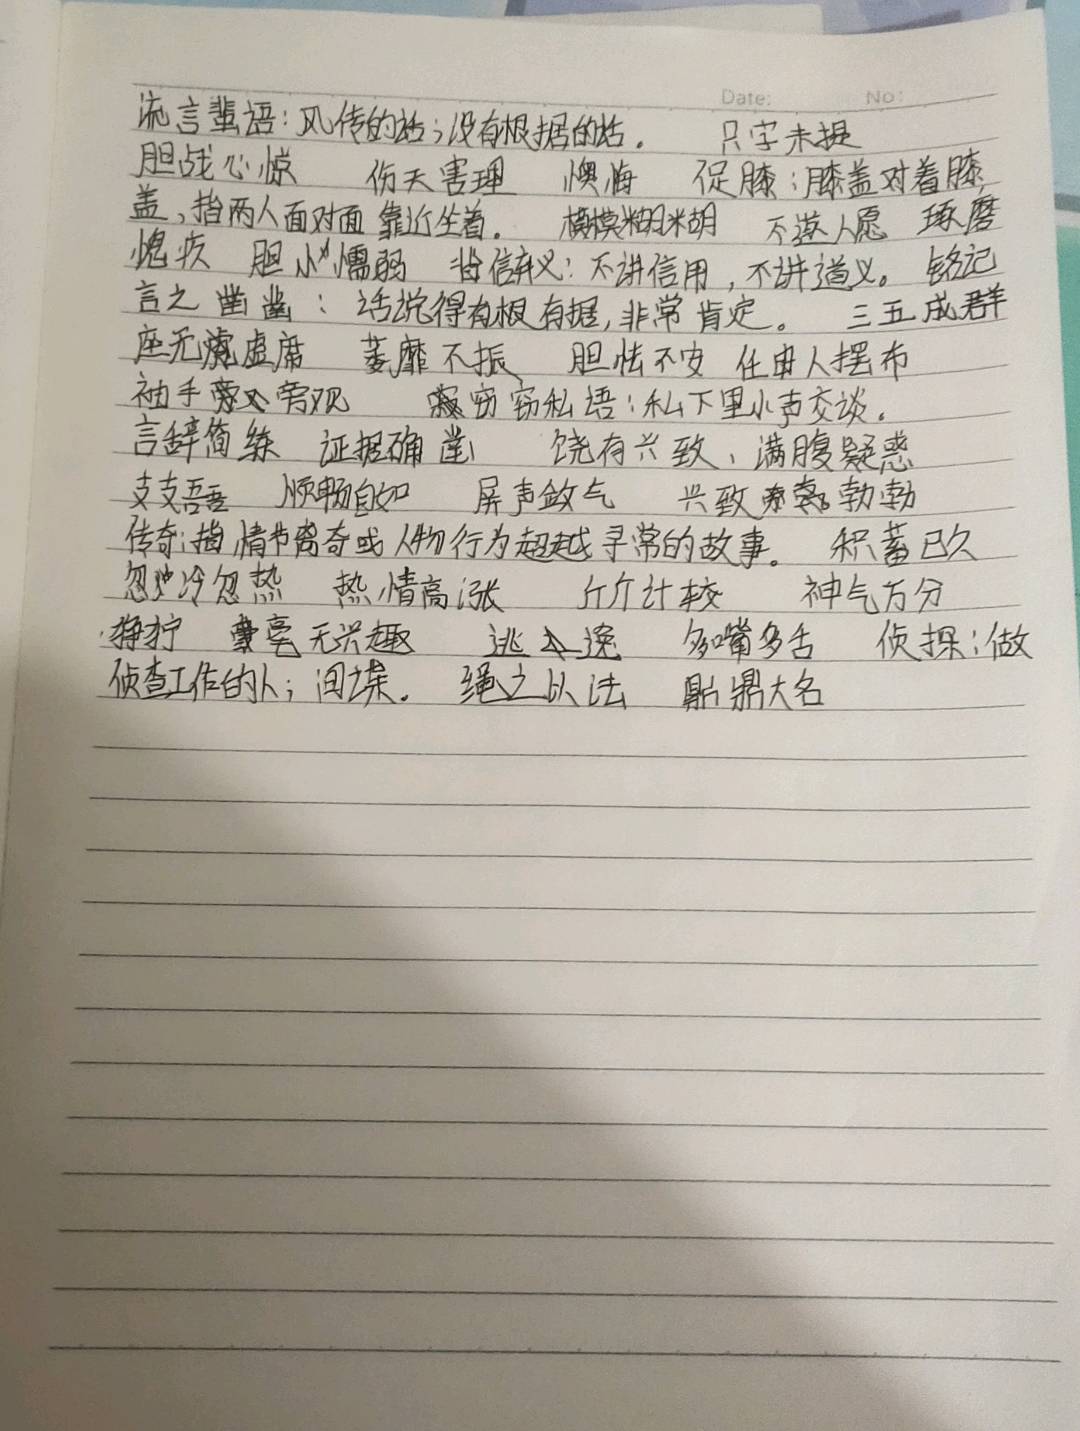 Date: No:
流言蜚语：风传的话；没有根据的话。 只字未提
胆战心惊 伤天害理 懊悔 促膝：膝盖对着膝
盖，指两人面对面靠近坐着。 模模糊糊 不遂人愿 琢磨
愧疚 胆小懦弱 背信弃义：不讲信用，不讲道义。 铭记
言之凿凿：话说得有根有据，非常肯定。 三五成群
座无虚席 萎靡不振 胆怯不安 任由人摆布
袖手旁观 窃窃私语：私下里小声交谈。
言辞简练 证据确凿 饶有兴致、满腹疑惑
支支吾吾 顺畅自如 屏声敛气 兴致勃勃
传奇：指情节离奇或人物行为超越寻常的故事。 积蓄已久
忽冷忽热 热情高涨 斤斤计较 神气万分
狰狞 毫无兴趣 逃逸 多嘴多舌 侦探：做
侦查工作的人；间谍。 绳之以法 鼎鼎大名